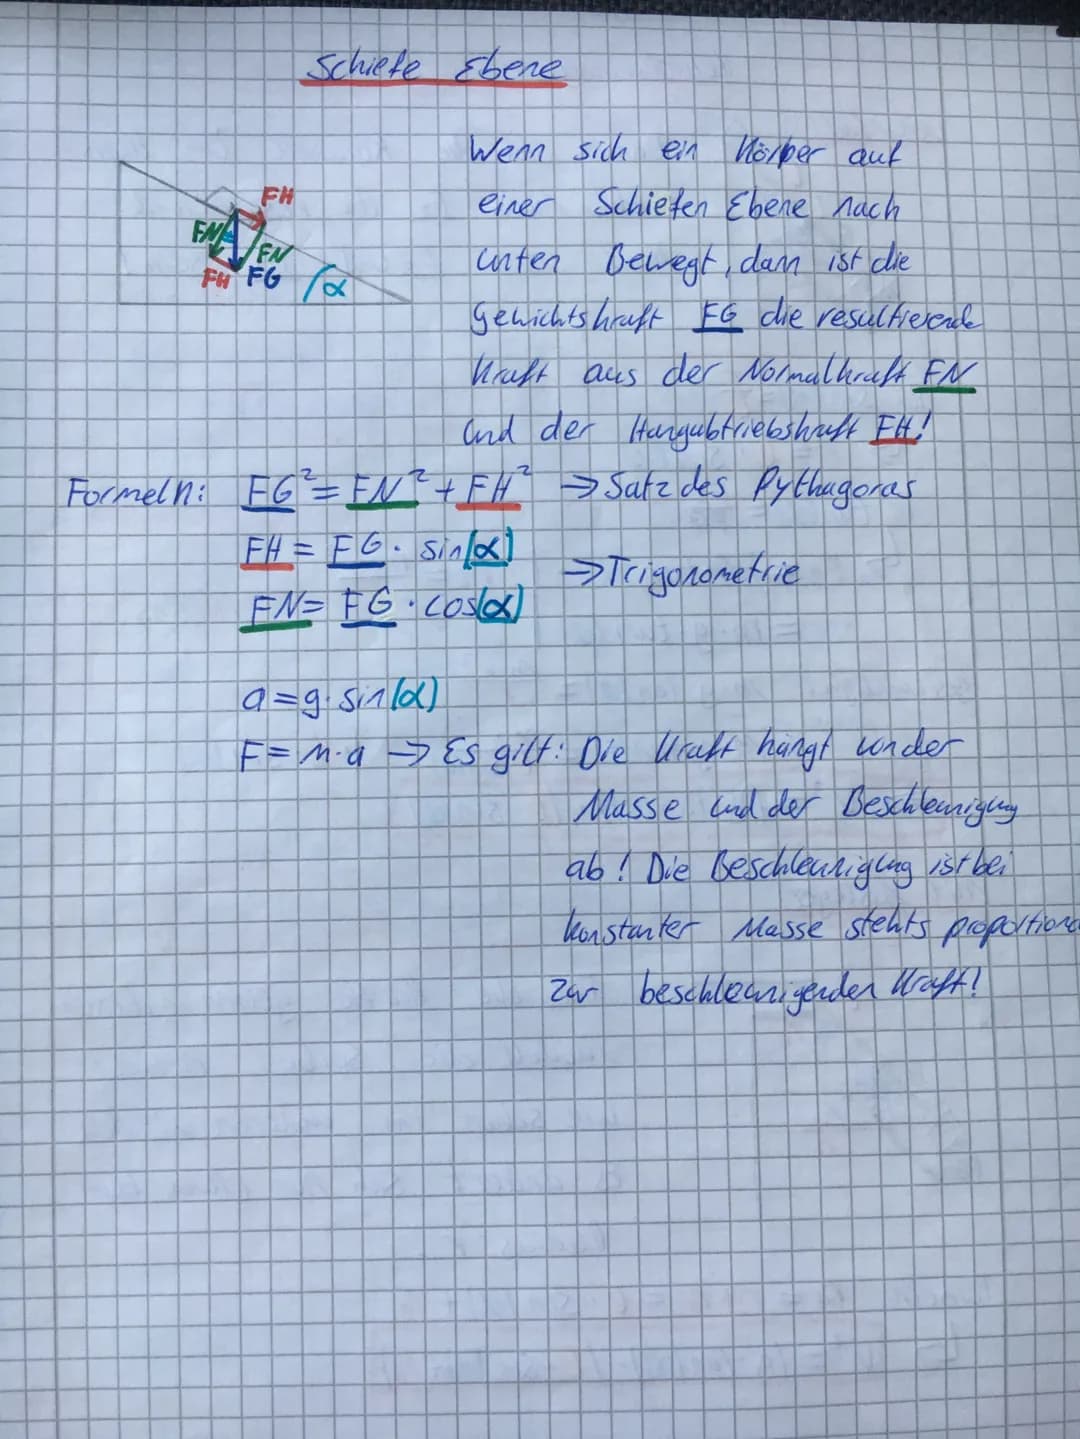 Schiefe Ebene
Wenn sich ein Körper auf
einer Schiefen Ebene nach
unten Bewegt, dann ist die
Gewichtskraft FG die resultierende
Kraft aus der Normalkraft FN
und der Hangabtriebskraft FH!
FH
FN
FN
FH FG
α
Formeln: FG² = FN² + FH² => Satz des Pythagoras
FH = FG · sin(α)
=> Trigonometrie
FN = FG · cos(α)
a = g · sin(α)
F = m · a -> Es gilt: Die Kraft hängt von der
Masse und der Beschleunigung
ab! Die Beschleunigung ist bei
konstanter Masse stehts proportional
zur beschleunigenden Kraft!